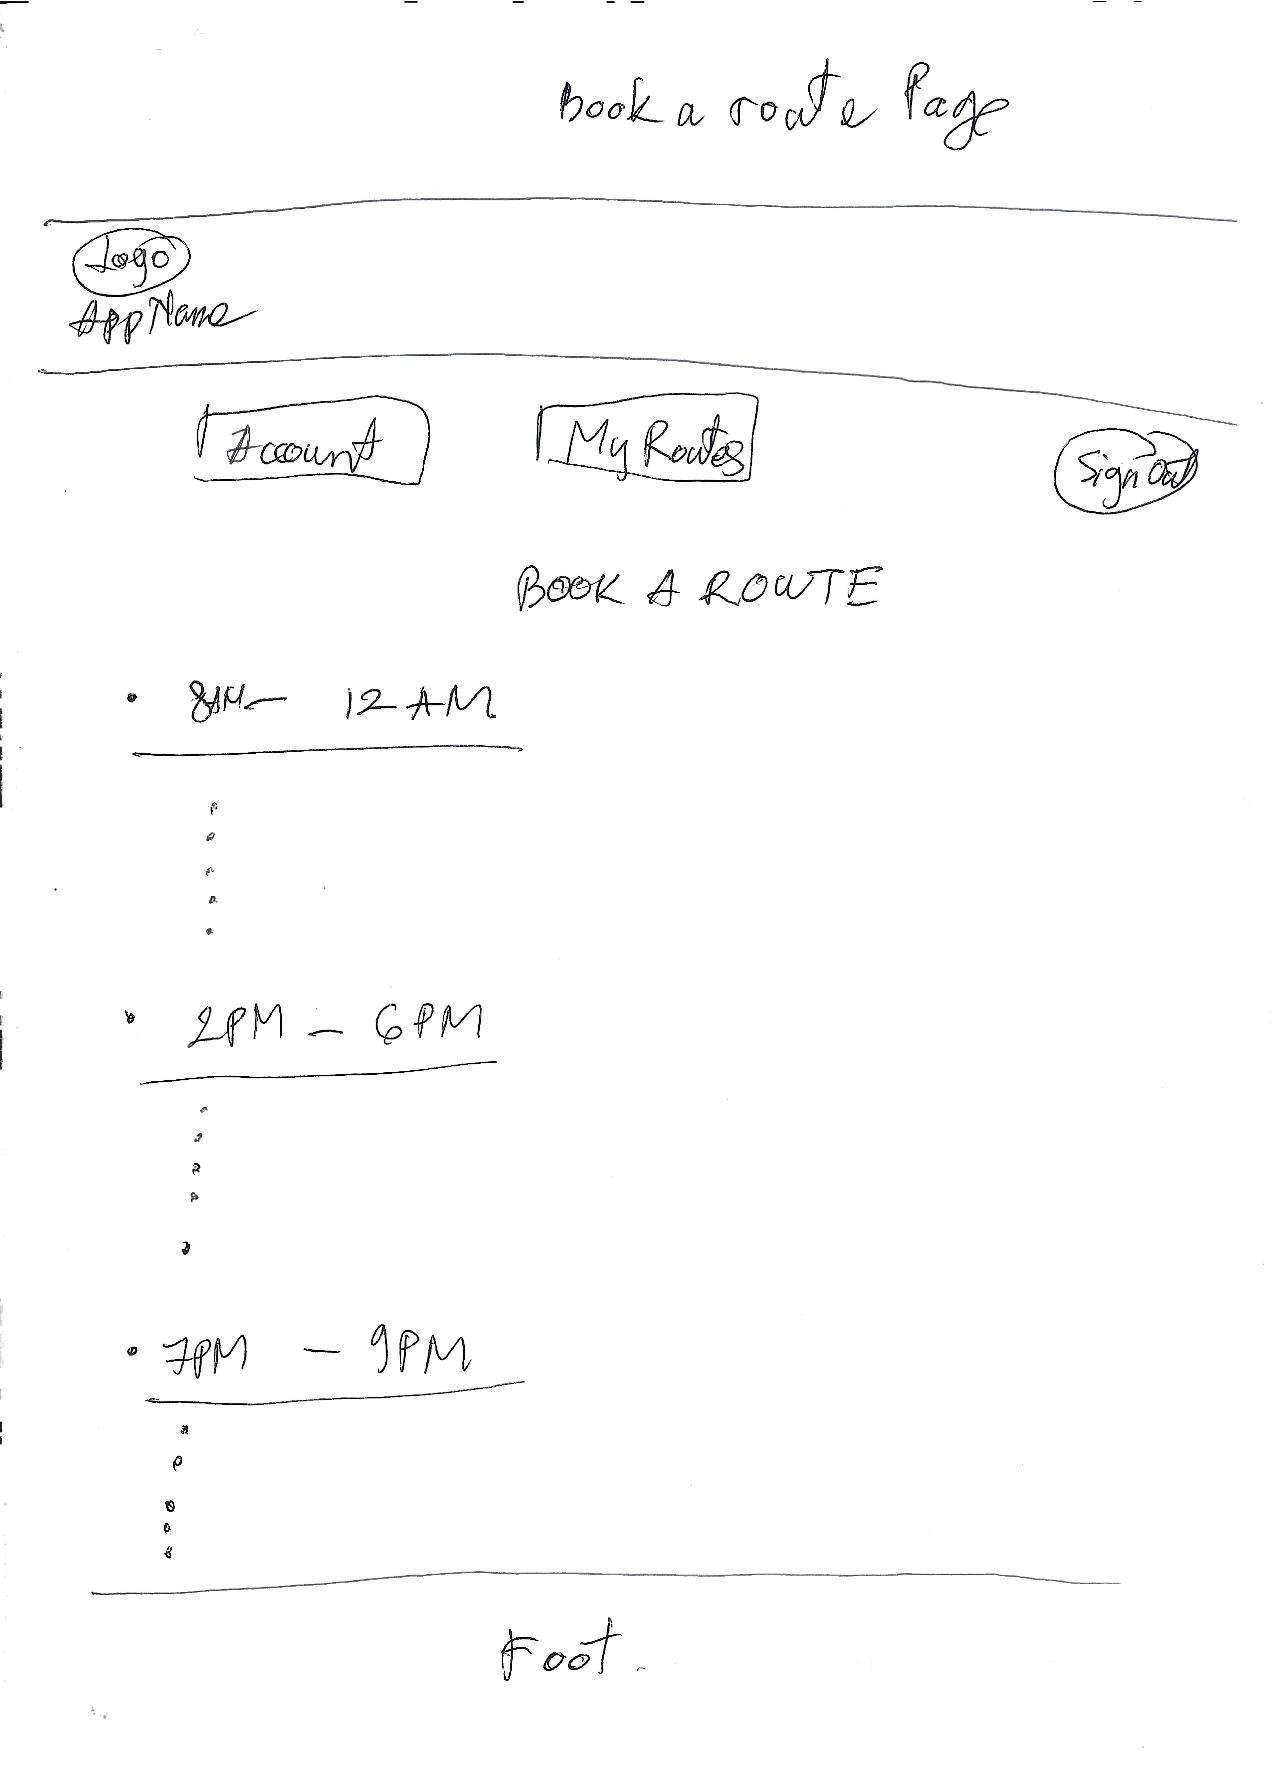 Book a route Page
Logo
AppName
Account
My Routes
Sign Out
BOOK A ROUTE
• 8AM - 12 AM
• 2PM - 6PM
• 7PM - 9PM
Foot.